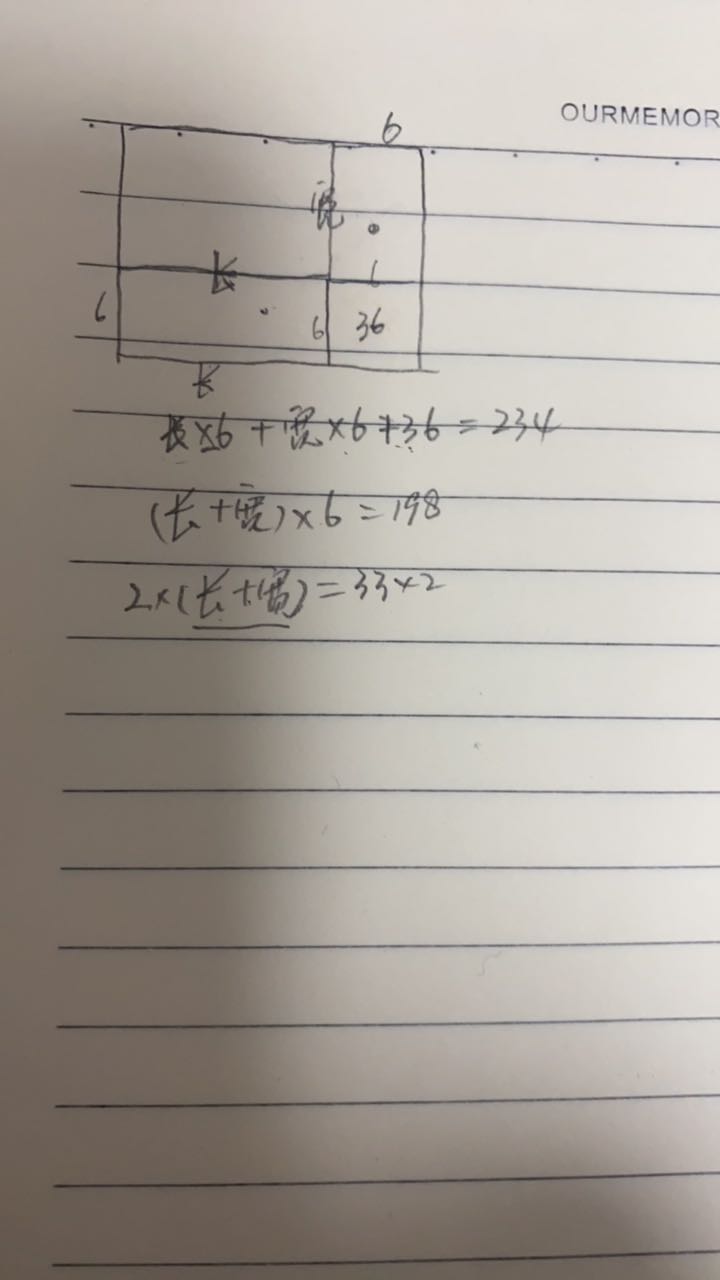 OURMEMOR
6
宽
长
6
6
6
36
长
长×6+宽×6+36=234
(长+宽)×6=198
2×(长+宽)=33×2